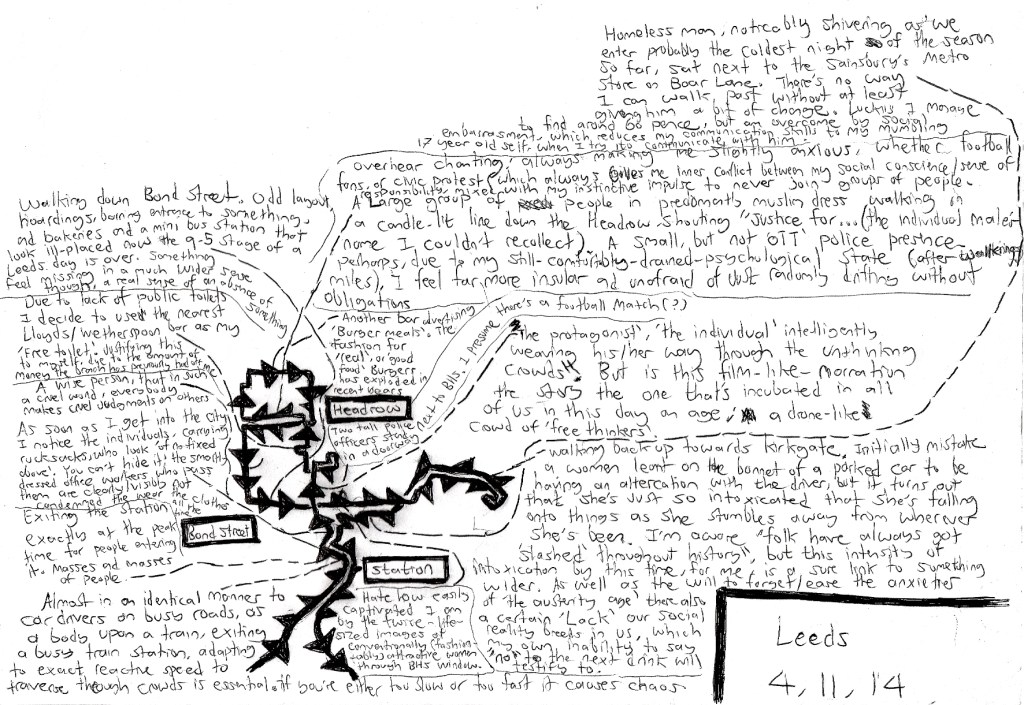 Homeless man, noticably shivering as we
enter probably the coldest night of the season
So far, sat next to the Sainsbury's Metro
Store on Boar Lane. There's no way
I can walk past without at least
giving him a bit of change. Luckily I manage
to find around 60 pence, but am overcome by social
embarrasment, which reduces my communication skills to my mumbling
17 year old self, when I try to communicate with him.
overhear chanting, always making me slightly anxious, whether football
fans, of civic protest (which always gives me inner conflict between my social conscience/sense of
responsibility mixed with my instinctive impulse to never join groups of people.
A Large group of people in predominant muslim dress walking in
a candle-lit line down the Headrow shouting "Justice for...(the individual male's
name I couldn't recollect). A small, but not OTT police presence-
perhaps, due to my still-comfortably-drained-psychological State (after
miles), I feel far more insular and unafraid of just randomly drifting without
obligations
Walking down Bond Street. Odd layout,
hoardings, boring entrance to something,
and bakeries and a mini bus station that
look ill-placed now the 9-5 stage of a
Leeds day is over. Something
feel missing, in a much wider sense
though, a real sense of an absence of
something
Due to lack of public toilets
I decide to used the nearest
Lloyds/wetherspoon bar as my
'Free toilet', justifying this
to myself, due to the amount of
money the branch has previously had off me
A wise person, that in such
a cruel world, everybody
makes cruel judgments on others
As soon as I get into the city,
I notice the individuals, carrying
rucksacks, who look 'of no fixed
above'. You can't hide it; the smartly
dressed office workers who pass
them are clearly/visibly not
condemned the wear the clothes
Exiting the station at the
exactly at the peak time
time for people entering
it. Masses and masses
of people.
Another bar advertising
'Burger meals'. The
fashion for
'real', or good
food' Burgers
has exploded in
recent years.
Headrow
Two tall police
officers stand
in a doorway
next to Bhs. I presume there's a football match(?)
'The protagonist', 'the individual' intelligently
weaving his/her way through the unthinking
crowds. But is this film-like-narration
the story the one that's incubated in all
of us in this day an age; a drone-like
crowd of 'free thinkers'
walking back up towards Kirkgate. Initially mistake
a women leant on the bonnet of a parked car to be
having an altercation with the driver, but it turns out
that she's just so intoxicated that she's falling
onto things as she stumbles away from wherever
she's been. I'm aware "folk have always got
slashed throughout history", but this intensity of
intoxication by this time, for me, is a sure link to something
wider. As well as the will to forget/ease the anxieties
of 'the austerity age' there also
a certain 'Lack' our social
reality breeds in us, which
my own inability to say
"no" to the next drink will
testify to.
Bond Street
Station
Hate how easily
captivated I am
by the twice-life-
sized images of
conventionally (fashion-
vably) attractive women
through BHS window.
Almost in an identical manner to
car drivers on busy roads, as
a body upon a train, exiting
a busy train station, adapting
to exact reactive speed to
traverse through crowds is essential. if you're either too slow or too fast it causes chaos.
Leeds
4, 11, 14